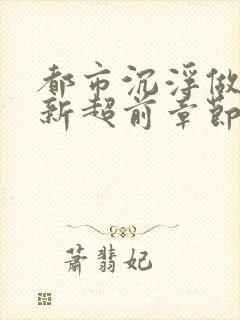 都市沉浮做
新超前章節
蕭翡妃